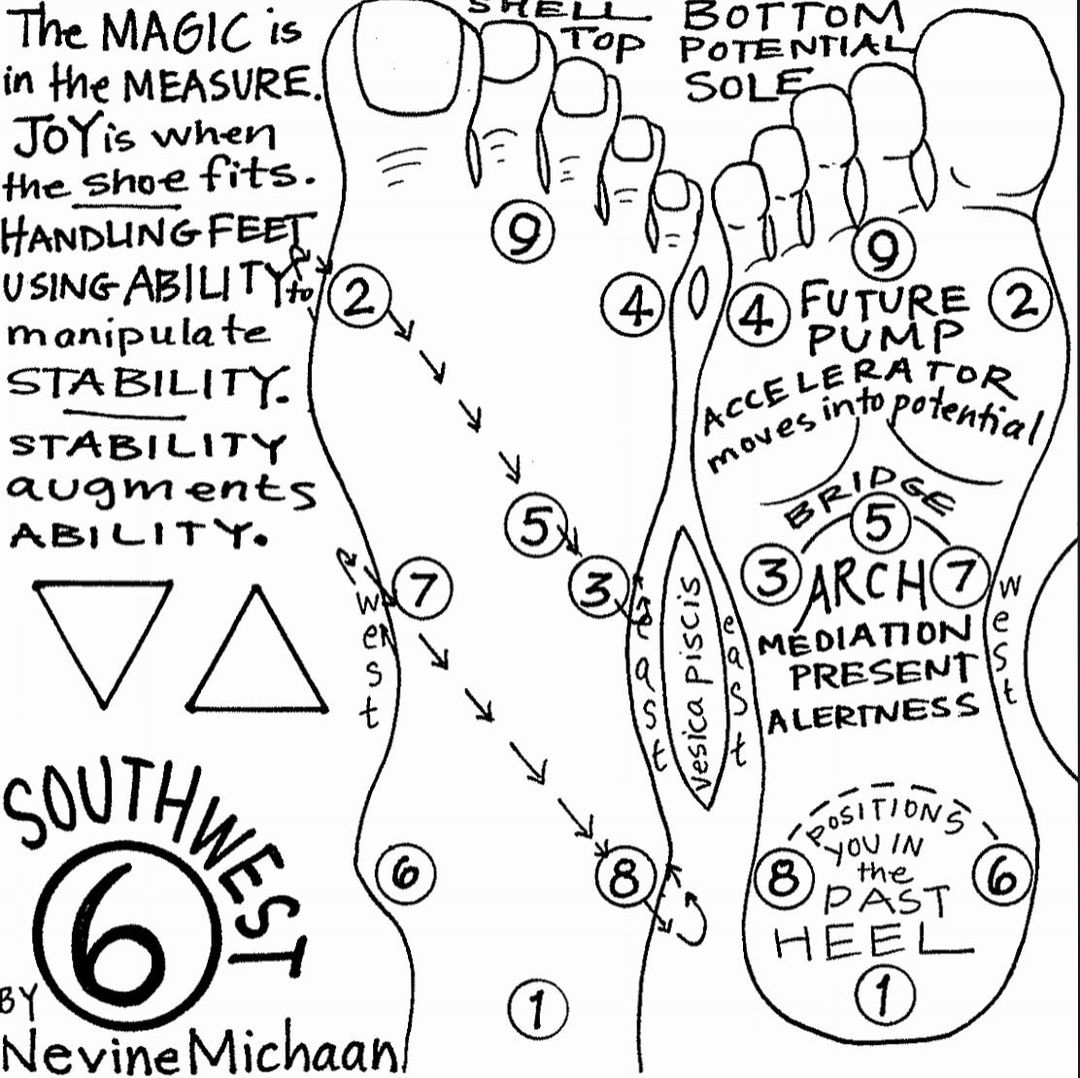 The MAGIC is
in the MEASURE.
JOY is when
the shoe fits.
HANDLING FEET
USING ABILITY to
manipulate
STABILITY.
STABILITY
augments
ABILITY.
SOUTHWEST
6
BY
Nevine Michaan
SHELL
TOP
9
2
4
5
7
3
west
east
6
8
1
vesica piscis
BOTTOM
POTENTIAL
SOLE
9
4
FUTURE
2
PUMP
ACCELERATOR
moves into potential
BRIDGE
5
3
ARCH
7
east
west
MEDIATION
PRESENT
ALERTNESS
POSITIONS
YOU IN
8
the
6
PAST
HEEL
1